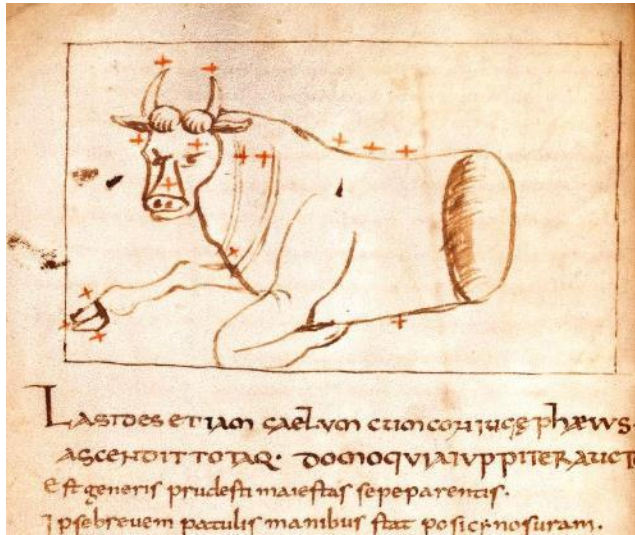 LASIDES ETIAM CAELVM CUM CONIUGE PHAEVVS
ASCENDIT TOTAQ· DOMO QVIA IVPPITER AUCT
Est generis prudesti maiestas sepe parentis·
Ipse brevem patulis manibus stat posi cynosuram·